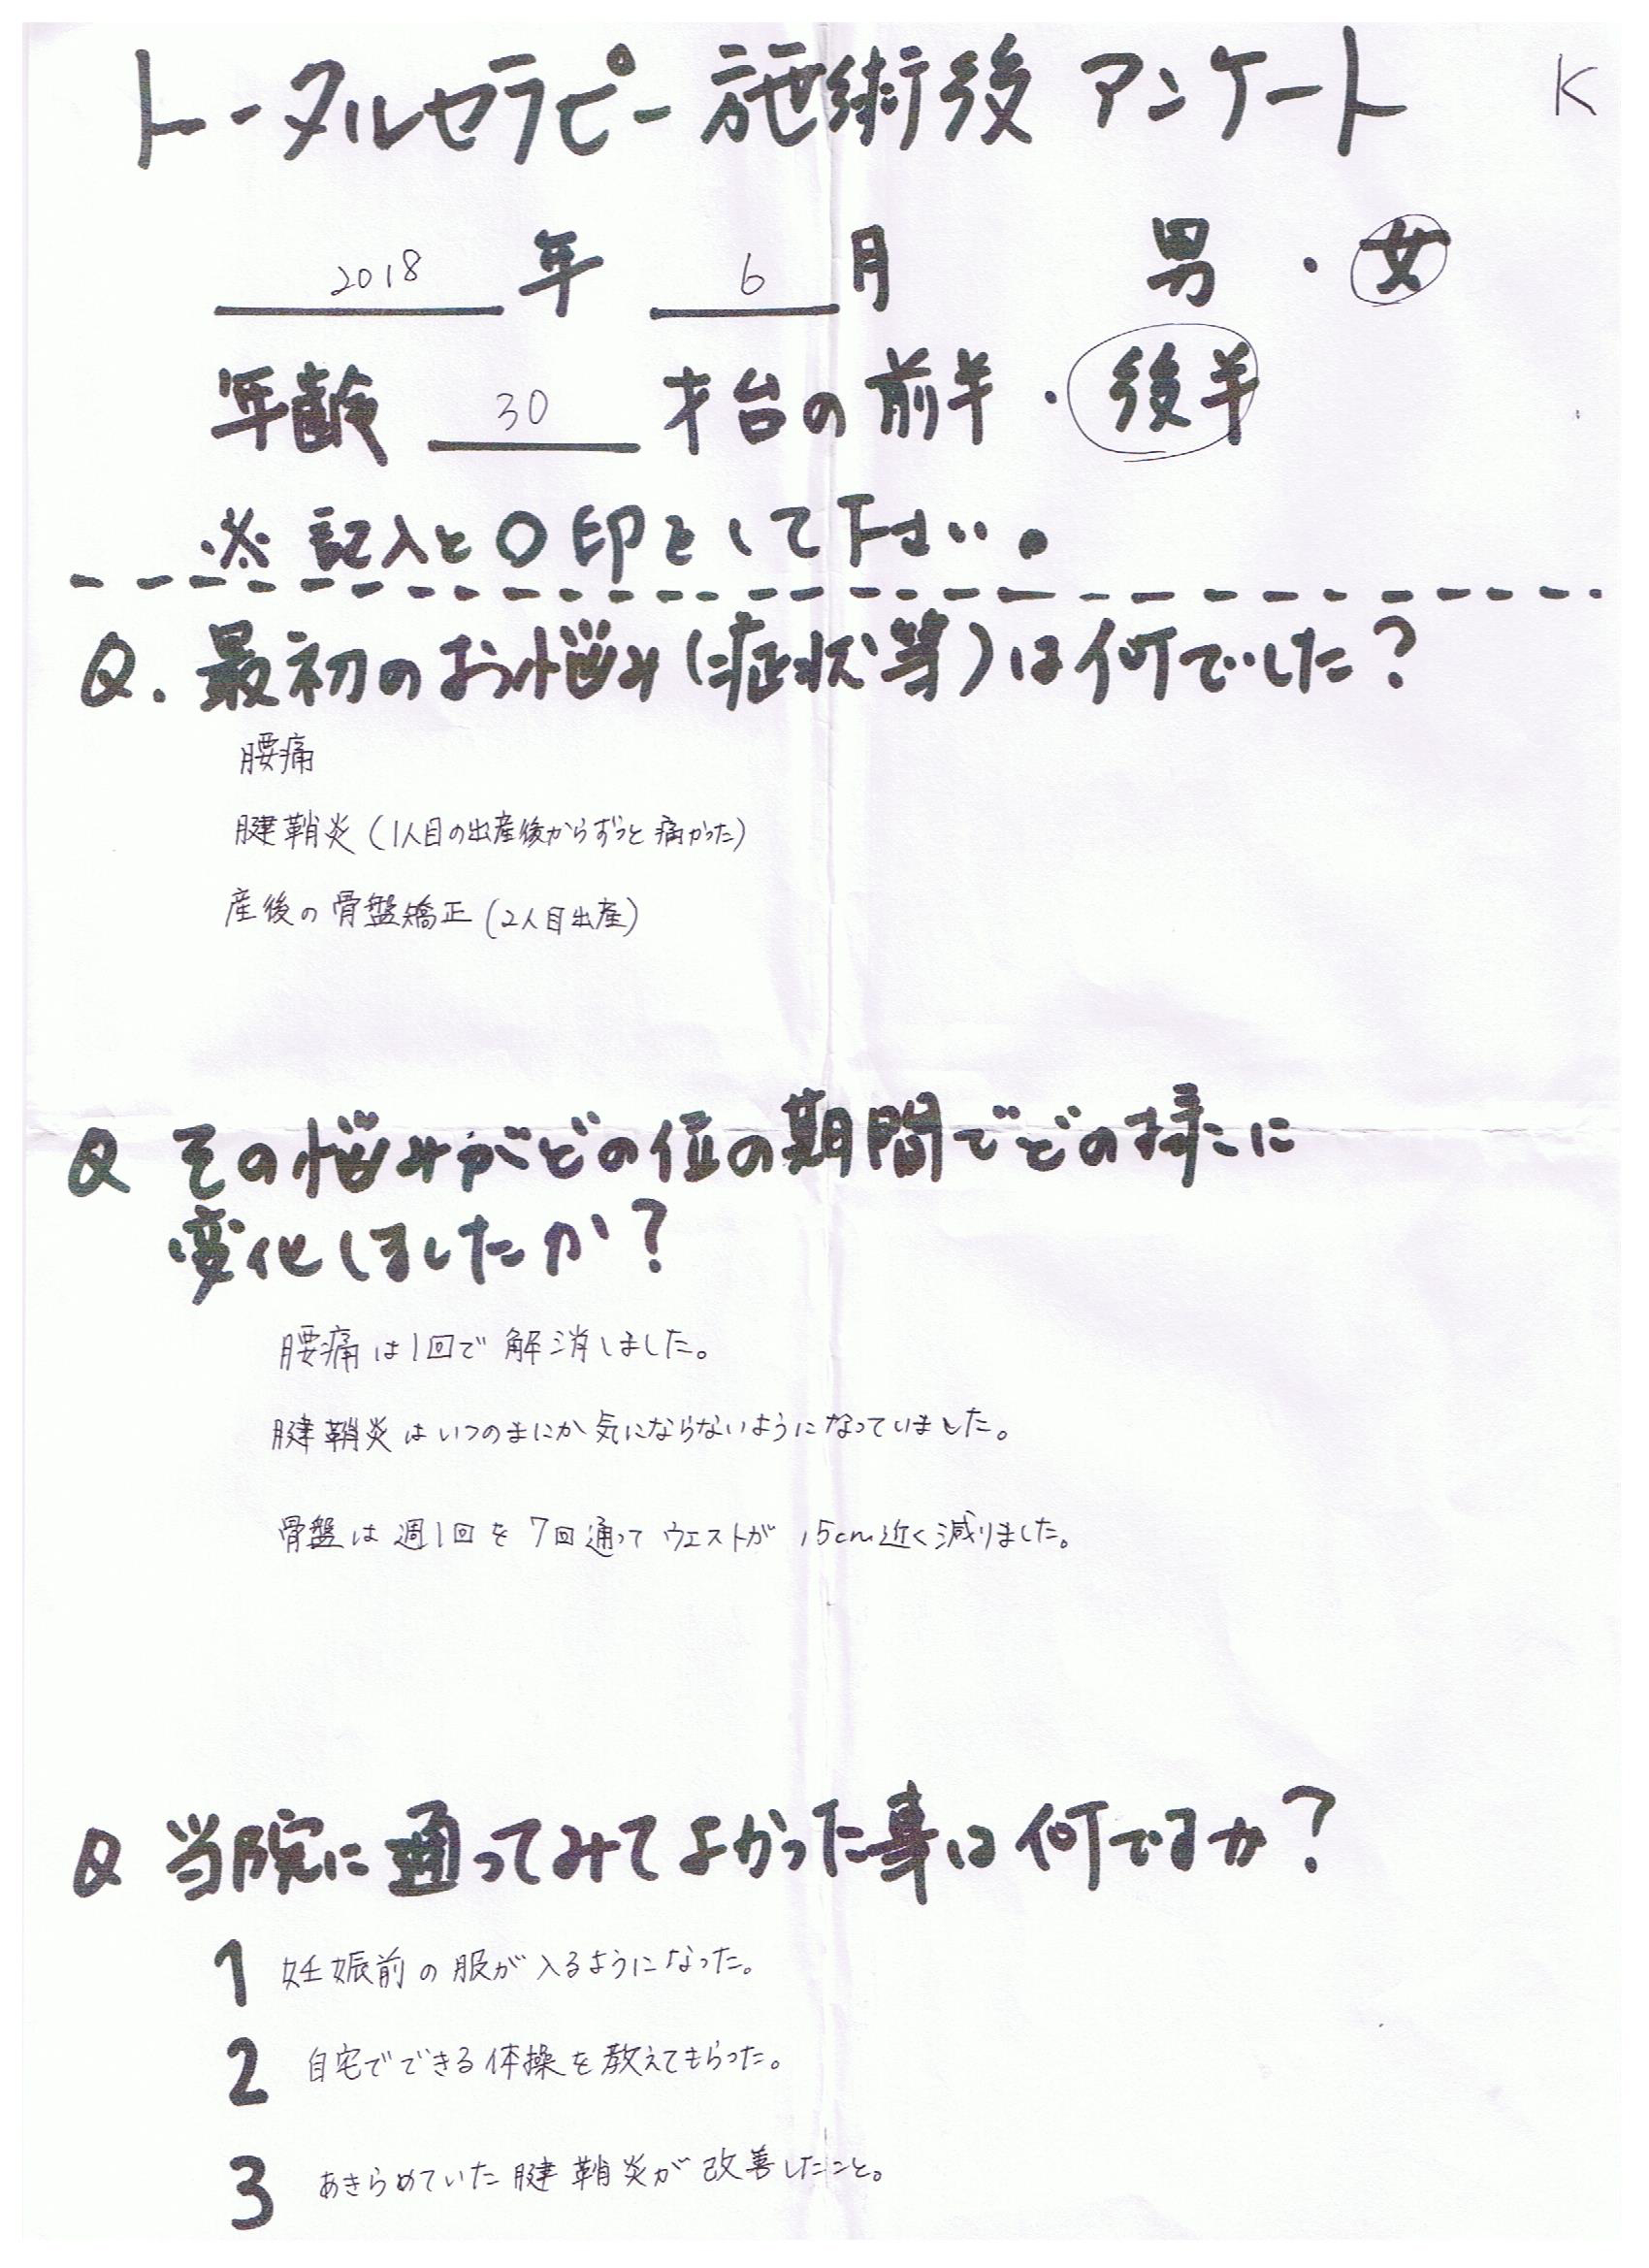 トータルセラピー施術後 アンケート K
2018 年 6 月 男・女
年齢 30 才台の前半・後半
※記入と〇印をして下さい。
Q. 最初のお悩み(症状等)は何でした?
腰痛
腱鞘炎(1人目の出産後からずっと痛かった)
産後の骨盤矯正(2人目出産)
Q その悩みがどの位の期間でどの様に
変化しましたか?
腰痛は1回で解消しました。
腱鞘炎はいつのまにか気にならないようになっていました。
骨盤は週1回を7回通ってウエストが15cm近く減りました。
Q 当院に通ってみてよかった事は何ですか?
1 妊娠前の服が入るようになった。
2 自宅でできる体操を教えてもらった。
3 あきらめていた腱鞘炎が改善したこと。